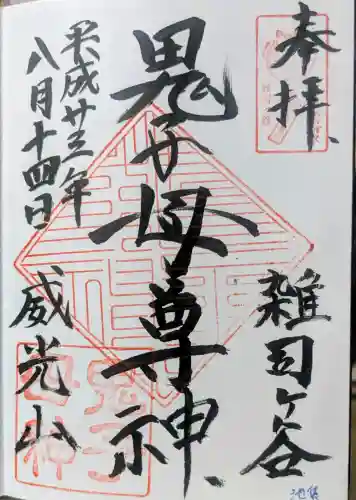 奉拝
雑司ヶ谷
鬼子母尊神
平成廿三年
八月十四日
威光山